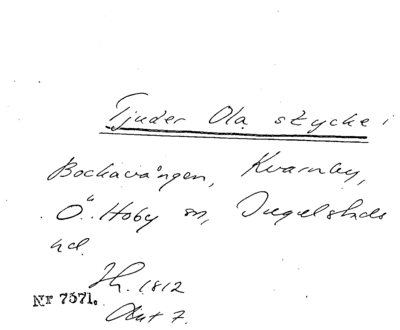 Tjuder Ola stycke i
Bockavången, Kvarnby,
Ö. Hoby sn, Ingelstads
hd.
Jh. 1812
Akt 7.
NR 7571.